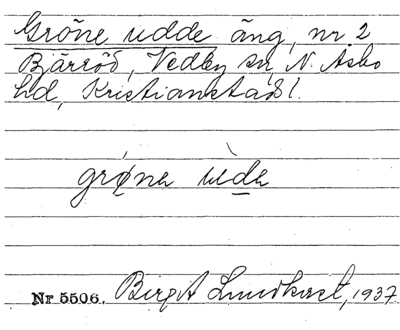 Gröne udde äng, nr 2
Bjärröd, Vedby sn, N. Åsbo
hd, Kristianstads l.
grø̀nə ùdə
Nr 5506. Birgit Lundkvist, 1937